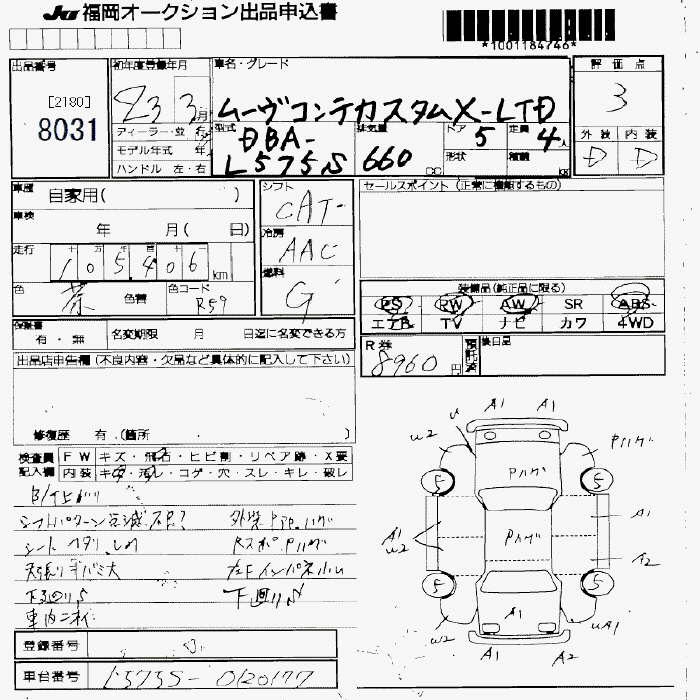 JU 福岡オークション出品申込書
*1001184746*
出品番号
[2180]
8031
初年度登録年月
23 3月
ディーラー・並 行
モデル年式 年
ハンドル 左・右
車名・グレード
ムーヴコンテカスタムX-LTD
型式
DBA-
L575S
排気量
660
CC
ドア
5
定員
4人
形状
積載
kg
評価点
3
外装 内装
D D
車歴
自家用( )
車検
年 月( 日)
走行
十 万 千 百 十
105406 km
色
茶
色替
色コード
R59
シフト
CAT
冷房
AAC
燃料
G
セールスポイント (正常に機能するもの)
装備品(純正品に限る)
PS PW AW SR ABS
エアB TV ナビ カワ 4WD
保証書
有・無
名変期限 月 日迄に名変できる方
R券
8960円
預託済
後日品
出品店申告欄 (不良内容・欠品など具体的に記入して下さい)
修復歴 有 (箇所 )
検査員
記入欄
FW キズ・飛石・ヒビ割・リペア跡・X要
内装 キズ・汚れ・コゲ・穴・スレ・キレ・破レ
シフトパターン点滅不良?
外装上PP.ハゲ
シートヘタリ.シミ
Rスポ.Pハゲ
天張りキバミ大
左Fインパネハム
下廻りS
下廻りS
車内ニオイ
登録番号
車台番号
L575S-0120177
A1 A1
U
U2
Pハゲ
Pハゲ
5 5
A1
U2
Pハゲ
A1
A2
5 5
U2
A1
UA1
A1 A2